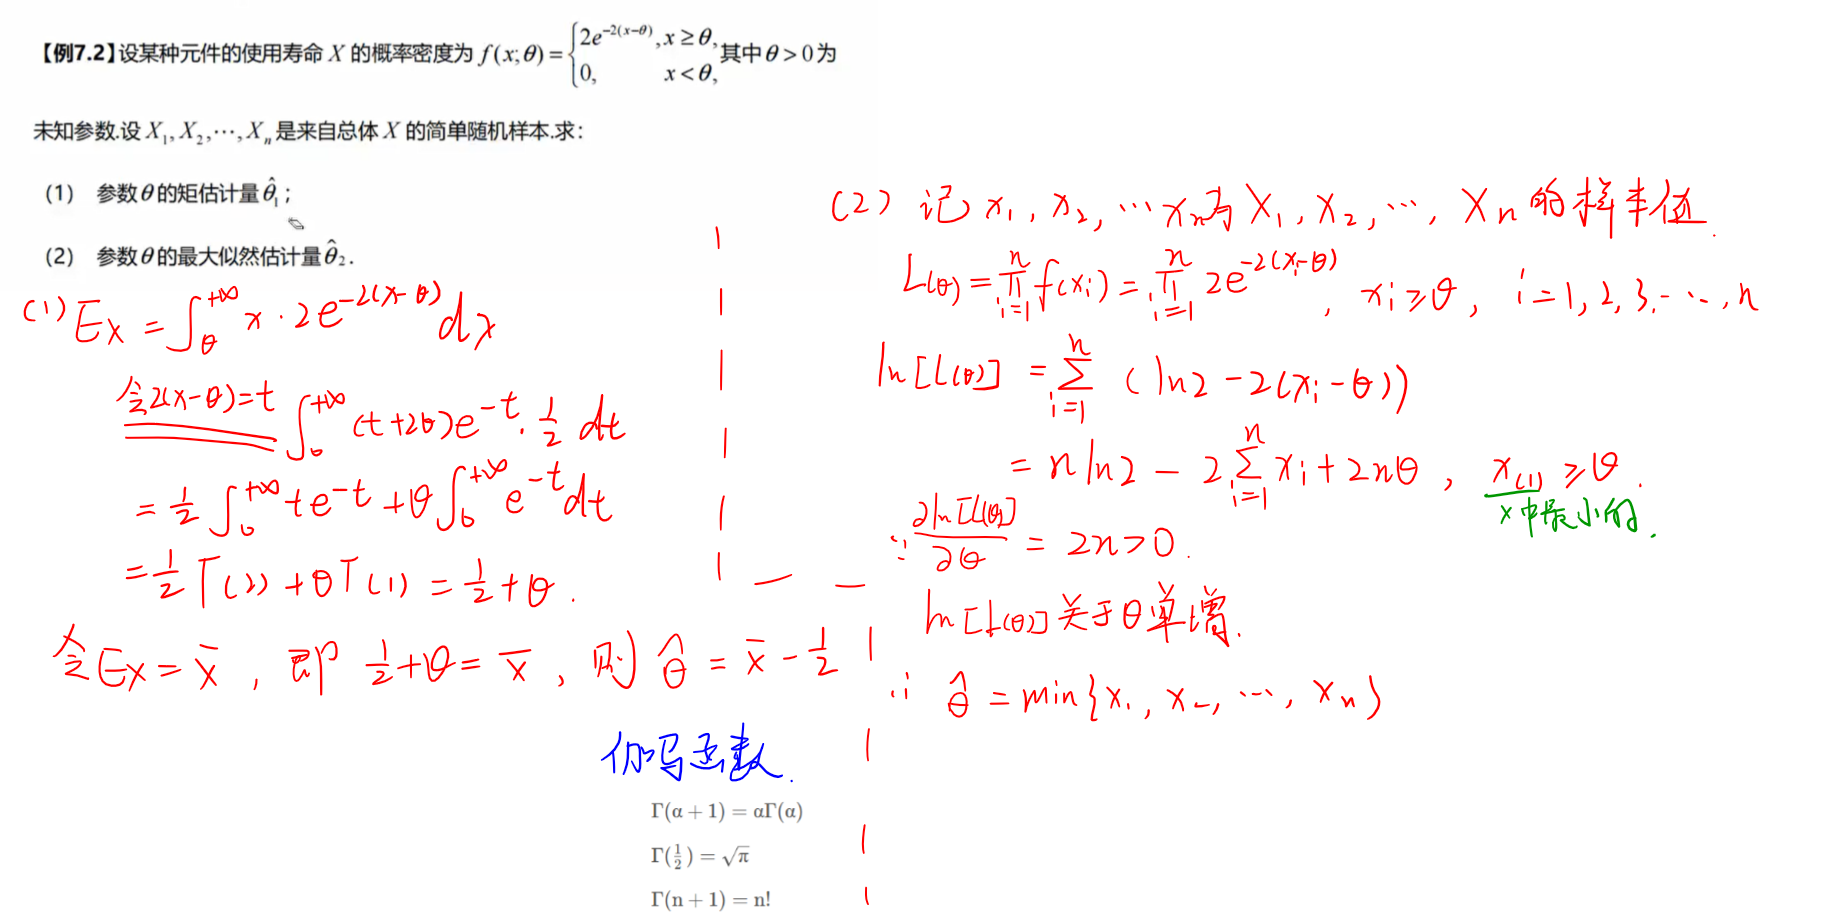 【例7.2】设某种元件的使用寿命 X 的概率密度为 f(x;θ) = { 2e^{-2(x-θ)}, x ≥ θ, 0, x < θ, 其中θ > 0为
未知参数.设 X₁, X₂, ⋯, Xₙ 是来自总体 X 的简单随机样本.求：
(1) 参数θ的矩估计量θ̂₁；
(2) 参数θ的最大似然估计量θ̂₂.
(1) EX = ∫_θ^{+∞} x · 2e^{-2(x-θ)} dx
令2(x-θ)=t ∫_0^{+∞} (t+2θ)e^{-t} · ½ dt
= ½ ∫_0^{+∞} te^{-t} + θ ∫_0^{+∞} e^{-t} dt
= ½ Γ(2) + θ Γ(1) = ½ + θ .
令 EX = x̄ , 即 ½ + θ = x̄ , 则 θ̂ = x̄ - ½
伽马函数.
Γ(α + 1) = αΓ(α)
Γ(½) = √π
Γ(n + 1) = n!
(2) 记 x₁, x₂, ⋯ xₙ为 X₁, X₂, ⋯, Xₙ 的样本值.
L(θ) = ∏_{i=1}^n f(xᵢ) = ∏_{i=1}^n 2e^{-2(xᵢ-θ)} , xᵢ ≥ θ, i = 1, 2, 3, ⋯, n
ln[L(θ)] = ∑_{i=1}^n (ln2 - 2(xᵢ - θ))
= n ln2 - 2∑_{i=1}^n xᵢ + 2nθ , x₍₁₎ ≥ θ.
x中最小的.
∵ ∂ln[L(θ)]/∂θ = 2n > 0.
ln[L(θ)] 关于θ单增.
∴ θ̂ = min{x₁, x₂, ⋯, xₙ}